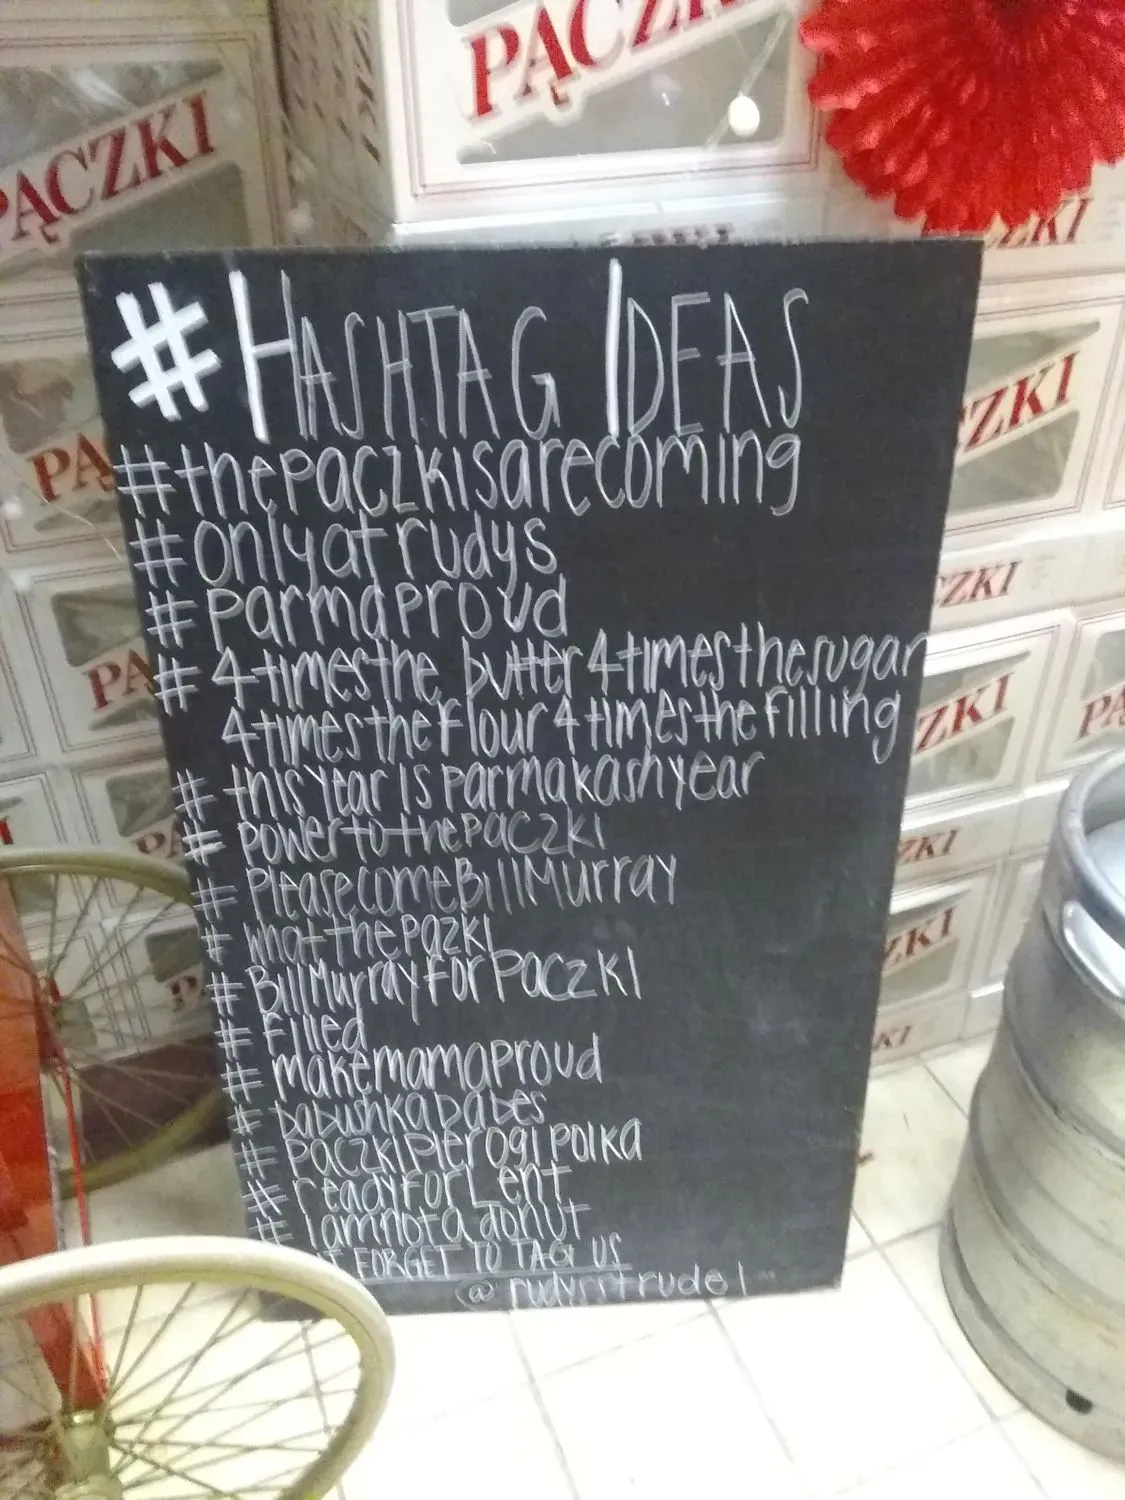 PĄCZKI
PĄCZKI
# HASHTAG IDEAS
#thepaczkisarecoming
#onlyatrudys
#parmaproud
#4timesthe butter4timesthesugar
4timestheflour4timesthefilling
#thisyearisparmakashyear
#powertothepaczki
#pleasecomeBillMurray
#whatthepazki
#BillMurrayforpaczki
#filled
#makemamaproud
#babushkababes
#paczkipierogipolka
#readyforLent
#iamnotadonut
FORGET TO TAG US
@rudysstrudel